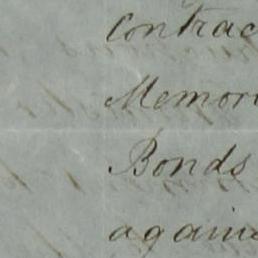 Contrac
Memori
Bonds
again